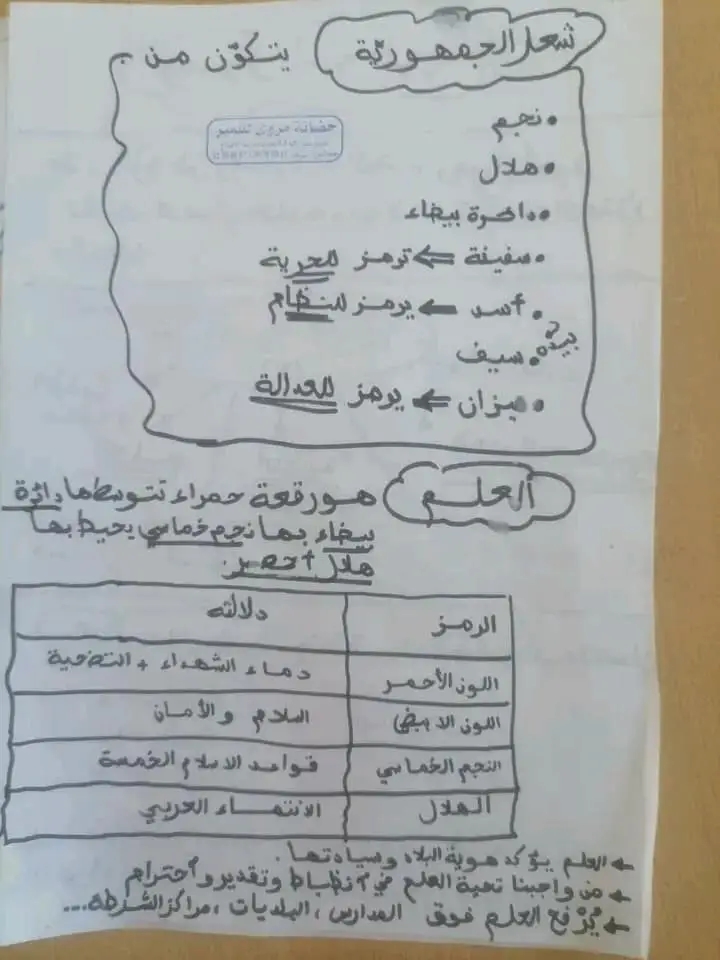 شعار الجمهوريّة يتكوّن من :
حضانة مروى تتميز
• نجم
• هلال
• دائرة بيضاء
• سفينة ⇐ ترمز للحرية
• أسد ← يرمز للنظام
بيده
• سيف
• ميزان ← يرمز للعدالة
العلم هو رقعة حمراء تتوسطها دائرة
بيضاء بها نجم خماسي يحيط بها
هلال أحمر.
الرمز دلالته
اللون الأحمر دماء الشهداء + التضحية
اللون الابيض السلام والأمان
النجم الخماسي قواعد الاسلام الخمسة
الهلال الانتماء العربي
← العلم يؤكد هوية البلاد وسيادتها.
← من واجبنا تحية العلم في انظباط وتقدير وأحترام
← يُرْفع العلم فوق المدارس، البلديات، مراكز الشرطة...